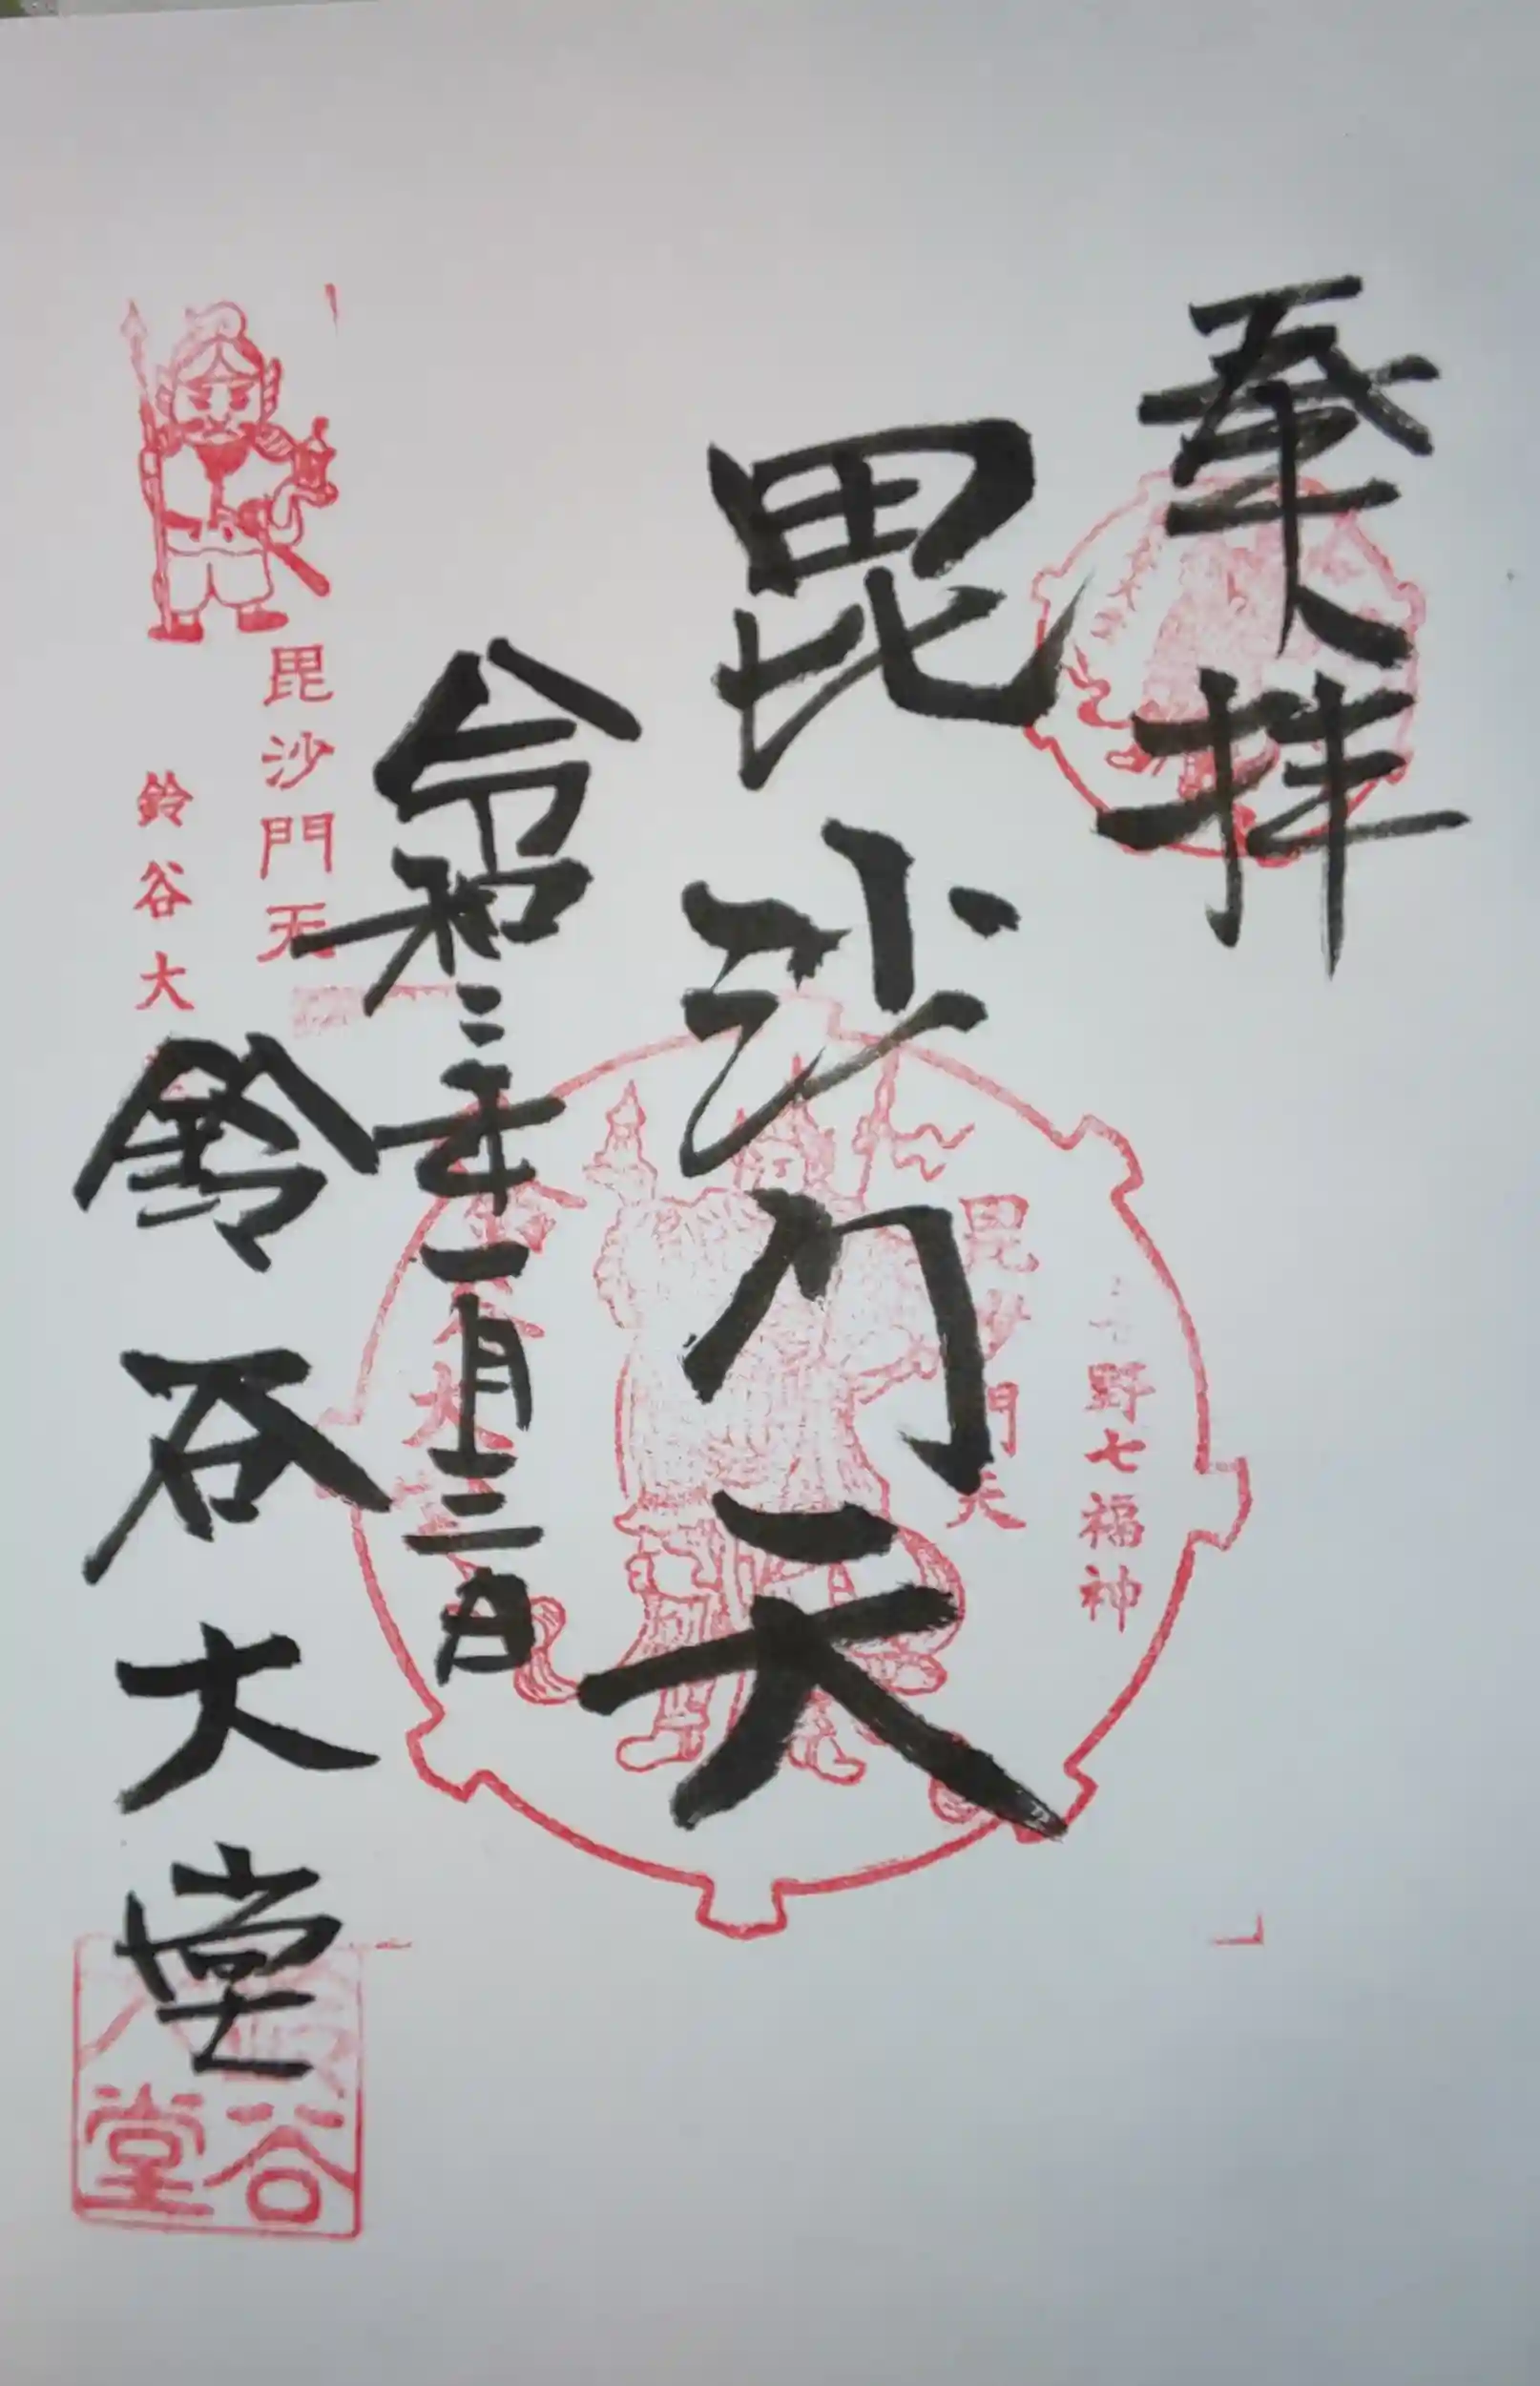 奉拝
毘沙门天
令和三年一月三日
鈴谷大堂
毘沙門天
鈴谷大
野七福神
毘沙門天
谷
堂